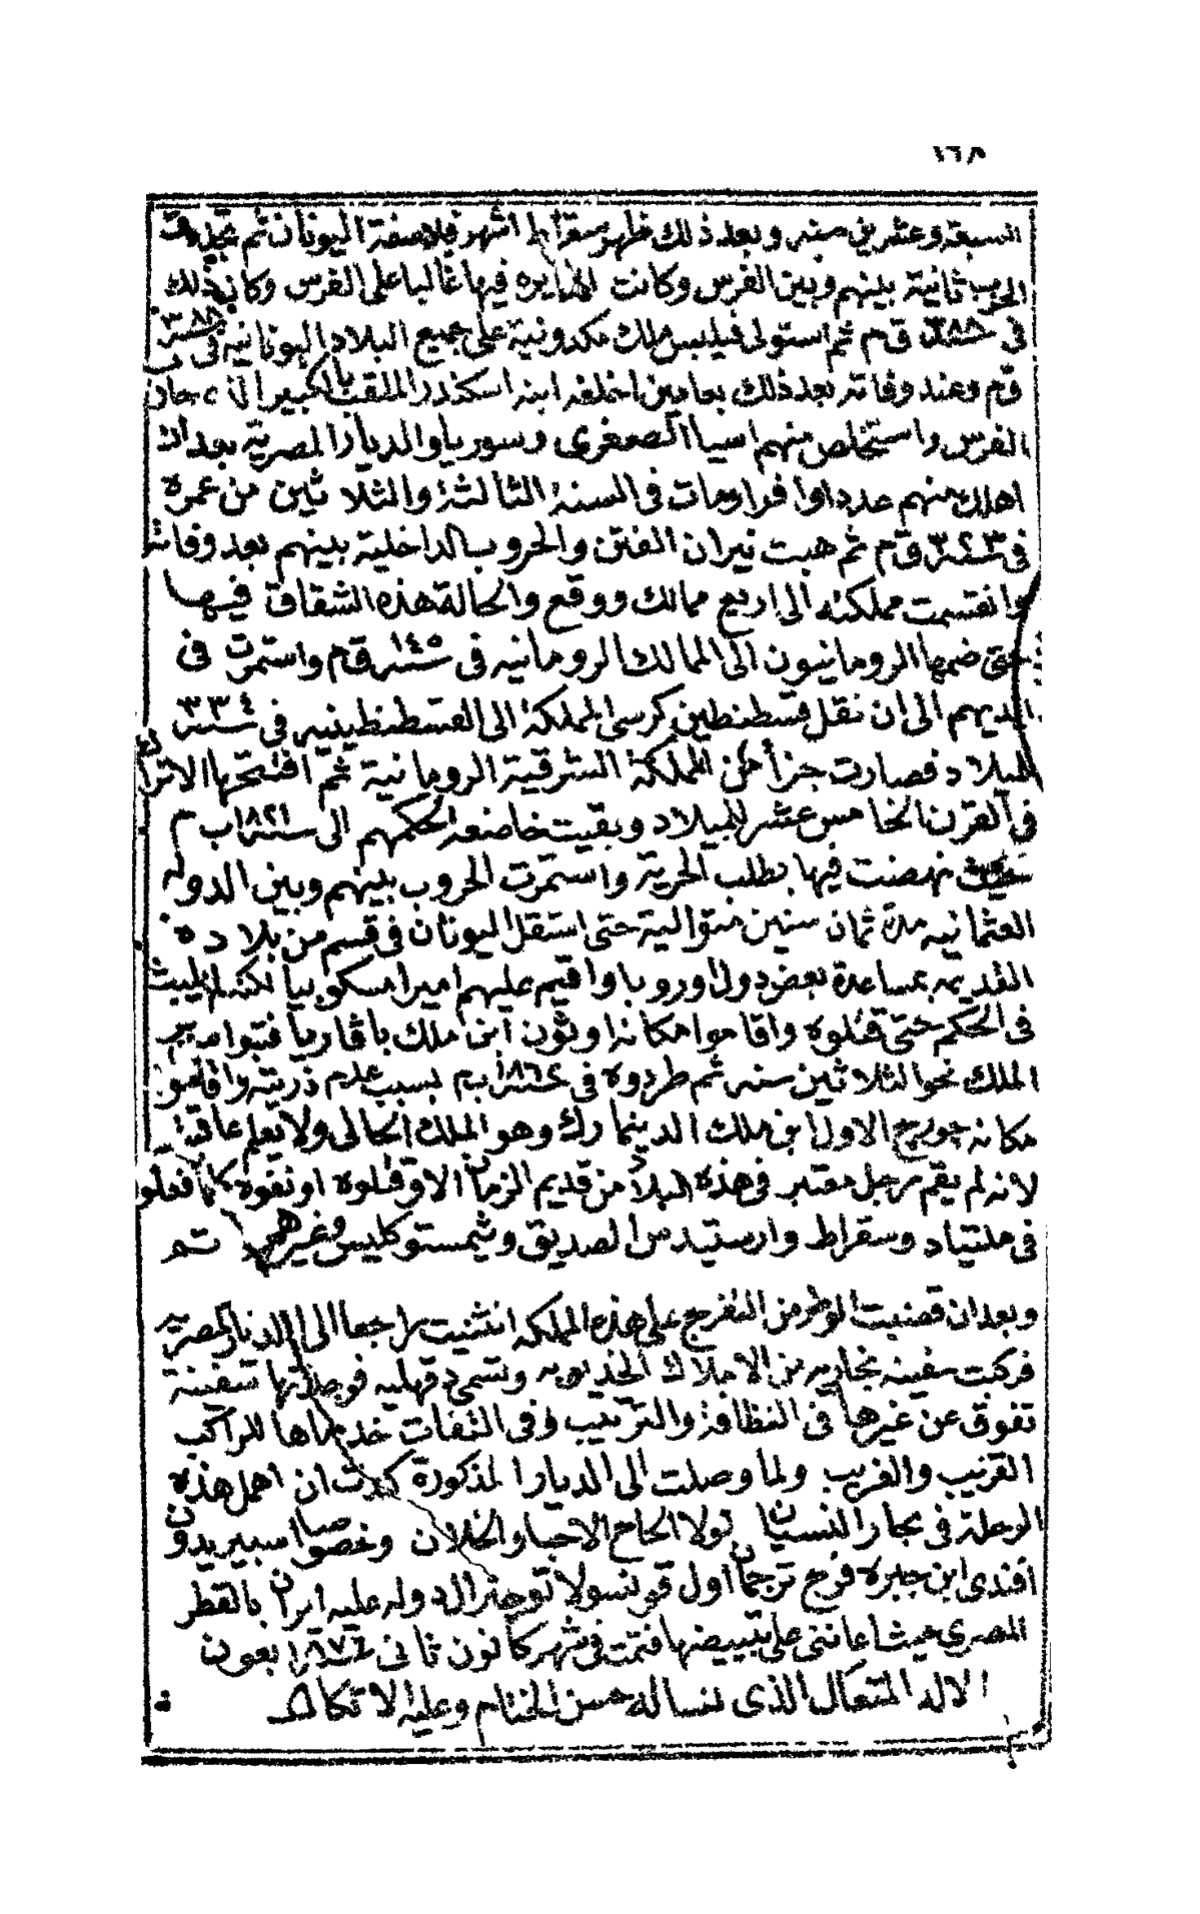 ١٦٨
السبعة وعشرين سنه وبعد ذلك ظهر سقراط اشهر فلاسفة اليونان ثم تجددت
الحرب ثانية بينهم وبين الفرس وكانت الدايره فيها غالبا على الفرس وكان ذلك
في سنة ق م ثم استولى فيلبس ملك مكدونية على جميع البلاد اليونانيه في سنة ٣٨٨
ق م وعند وفاته بعد ذلك بعامين اخلفه ابنه اسكندر الملقب بالكبير الذي حارب
الفرس واستخلص منهم اسيا الصغرى وسوريا والديار المصرية بعد ان
اهلك منهم عددا وافرا ومات في السنة الثالثة والثلاثين من عمره
في سنة ٣٢٣ ق م ثم هبت نيران الفتن والحروب الداخلية بينهم بعد وفاته
وانقسمت مملكته الى اربع ممالك ووقع والحالة هذه الشقاق فيها
حتى ضمها الرومانيون الى الممالك الرومانيه في سنة ١٤٥ ق م واستمرت في
ايديهم الى ان نقل قسطنطين كرسي المملكة الى القسطنطينيه في سنة ٣٣٤
للميلاد فصارت جزأ من المملكة الشرقية الرومانية ثم افتتحها الاتراك
في القرن الخامس عشر للميلاد وبقيت خاضعه لحكمهم الى سنة ١٨٢١ ب م
حيث نهضت فيها بطلب الحرية واستمرت الحروب بينهم وبين الدوله
العثمانيه مدة ثمان سنين متوالية حتى استقل اليونان في قسم من بلاده
القديمه بمساعدة بعض دول اوروبا واقيم عليهم اميرا مسكوبيا لكنه لم يلبث
في الحكم حتى قتلوه واقاموا مكانه اوثون ابن ملك باڤاريا فتبوا سرير
الملك نحو الثلاثين سنه ثم طردوه في سنة ١٨٦٢ ب م بسبب عدم ذريته واقاموا
مكانه جورج الاول ابن ملك الدينمارك وهو الملك الحالى ولا يعلم عاقبته
لانه لم يقم رجل معتبر في هذه البلاد من قديم الزمان الا وقتلوه او نفوه كما فعلوا
في ملتياد وسقراط وارستيدس الصديق وثيمستوكليس وغيرهم تم
وبعد ان قضيت الوطر من التفرج على هذه المملكه انثنيت راجعا الى الديار المصريه
فركبت سفينه بخاريه من الاملاك الخديويه وتسمى دقهليه فوجدتها سفينة
تفوق عن غيرها في النظافة والترتيب وفي التفات خدمها للراكب
القريب والغريب ولما وصلت الى الديار المذكورة كدت ان اهمل هذه
الرحلة في بحار النسيان لولا الحاح الاحبا والخلان وخصوصا اسبيريدون
افندى ابن جبره فرج ترجمان اول قونسولاتو جنرال دوله عليه ايران بالقطر
المصرى حيث اعانني على تبييضها فتمت في شهر كانون ثانى سنة ١٨٧٦ بعون
الاله المتعال الذى نساله حسن الختام وعليه الاتكال